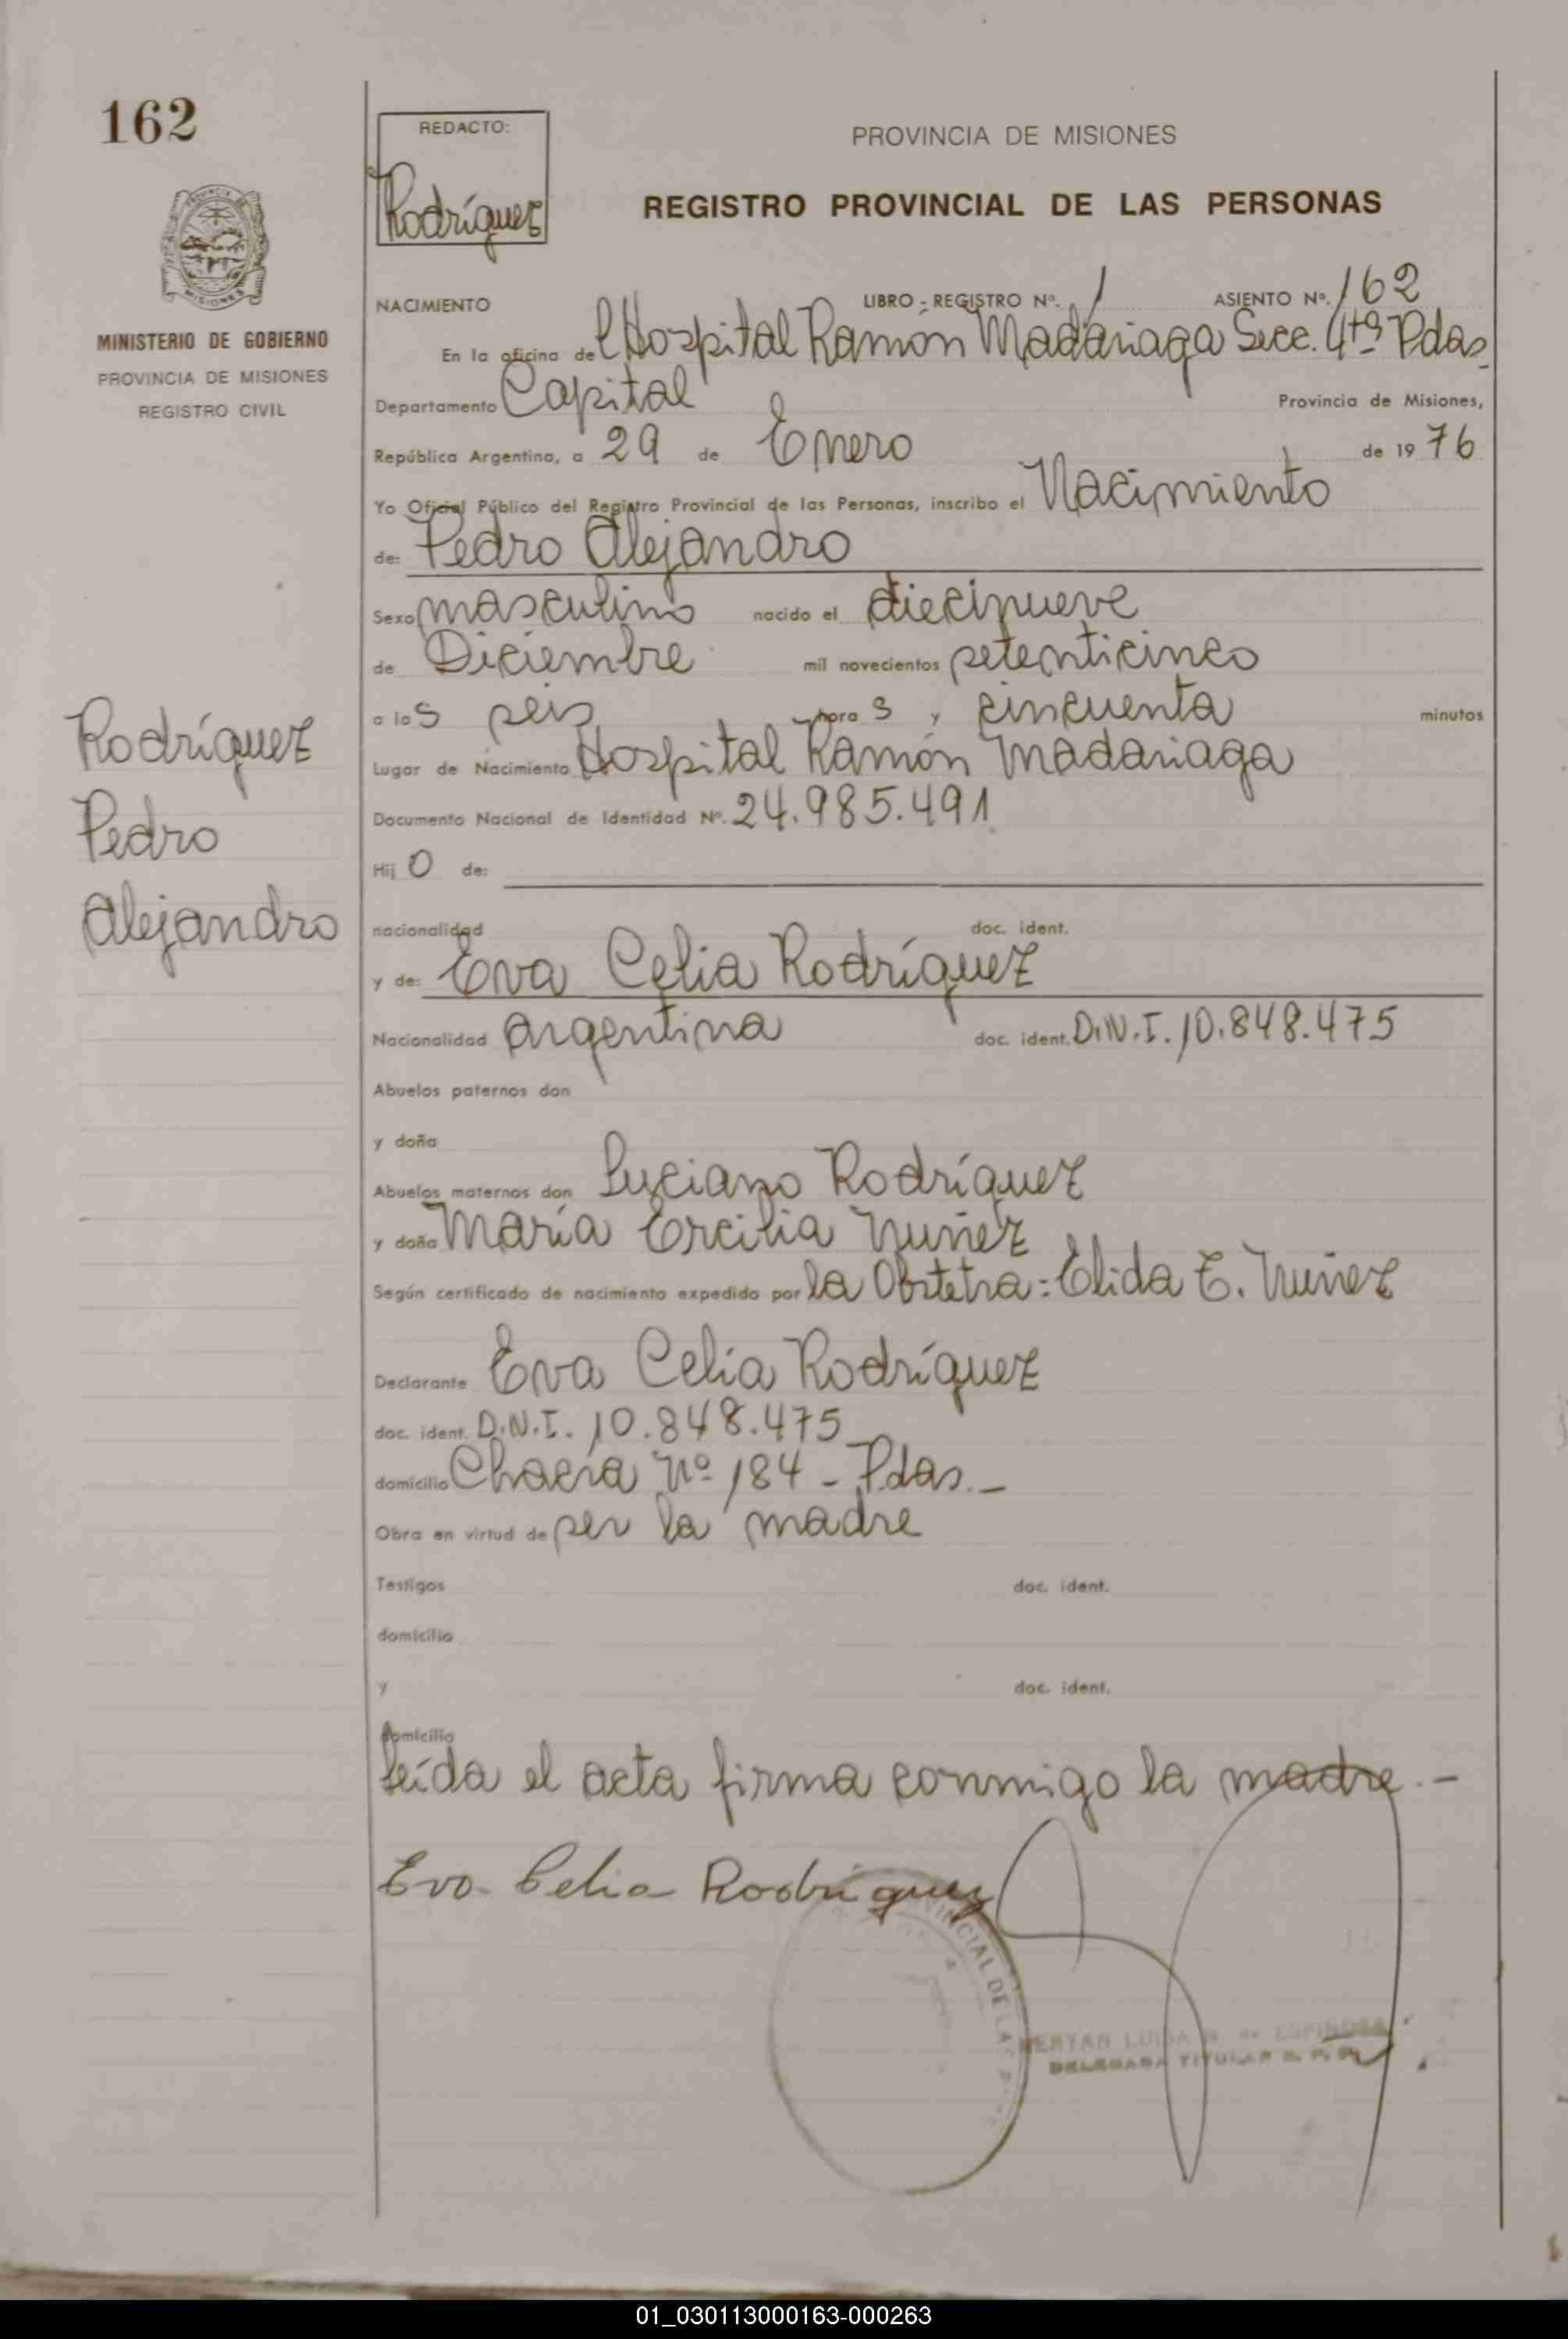 162
REDACTO:
Rodríguez
PROVINCIA DE MISIONES
REGISTRO PROVINCIAL DE LAS PERSONAS
MISIONES
MINISTERIO DE GOBIERNO
PROVINCIA DE MISIONES
REGISTRO CIVIL
NACIMIENTO LIBRO - REGISTRO Nº. 1 ASIENTO Nº. 162
En la oficina del Hospital Ramón Madariaga Secc. 4tª Pdas
Departamento Capital Provincia de Misiones,
República Argentina, a 29 de Enero de 1976
Yo Oficial Público del Registro Provincial de las Personas, inscribo el Nacimiento
de: Pedro Alejandro
Sexo masculino nacido el diecinueve
de Diciembre mil novecientos setenticinco
a las seis horas y cincuenta minutos
Lugar de Nacimiento Hospital Ramón Madariaga
Documento Nacional de Identidad Nº. 24.985.491
Hijo de:
nacionalidad doc. ident.
y de: Eva Celia Rodríguez
Nacionalidad Argentina doc. ident. D.N.I. 10.848.475
Abuelos paternos don
y doña
Abuelos maternos don Luciano Rodríguez
y doña María Ercilia Nuñez
Según certificado de nacimiento expedido por la Obstetra: Elida E. Nuñez
Declarante Eva Celia Rodríguez
doc. ident. D.N.I. 10.848.475
domicilio Chacra Nº 184 - Pdas. -
Obra en virtud de ser la madre
Testigos doc. ident.
domicilio
y doc. ident.
domicilio
leída el acta firma conmigo la madre. -
Eva Celia Rodriguez
Rodríguez
Pedro
Alejandro
PROVINCIAL DE LAS
LUISA N. de ESPINOSA
DELEGADA TITULAR R. P. P.
01_030113000163-000263